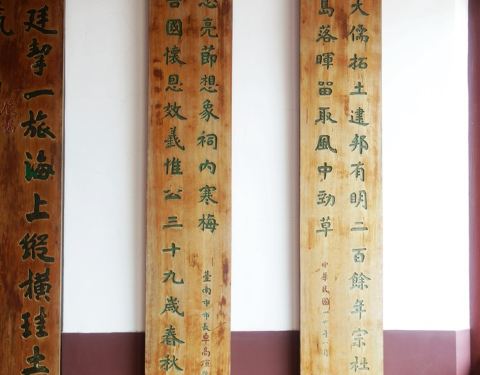 大儒拓土建邦有明二百餘年宗社
島落暉留取風中勁草
中華民國
忠亮節想象祠內寒梅
臺南市市長卓高煊
國懷恩效義惟公三十九歲春秋
廷挈一旅海上縱橫珪土
氣